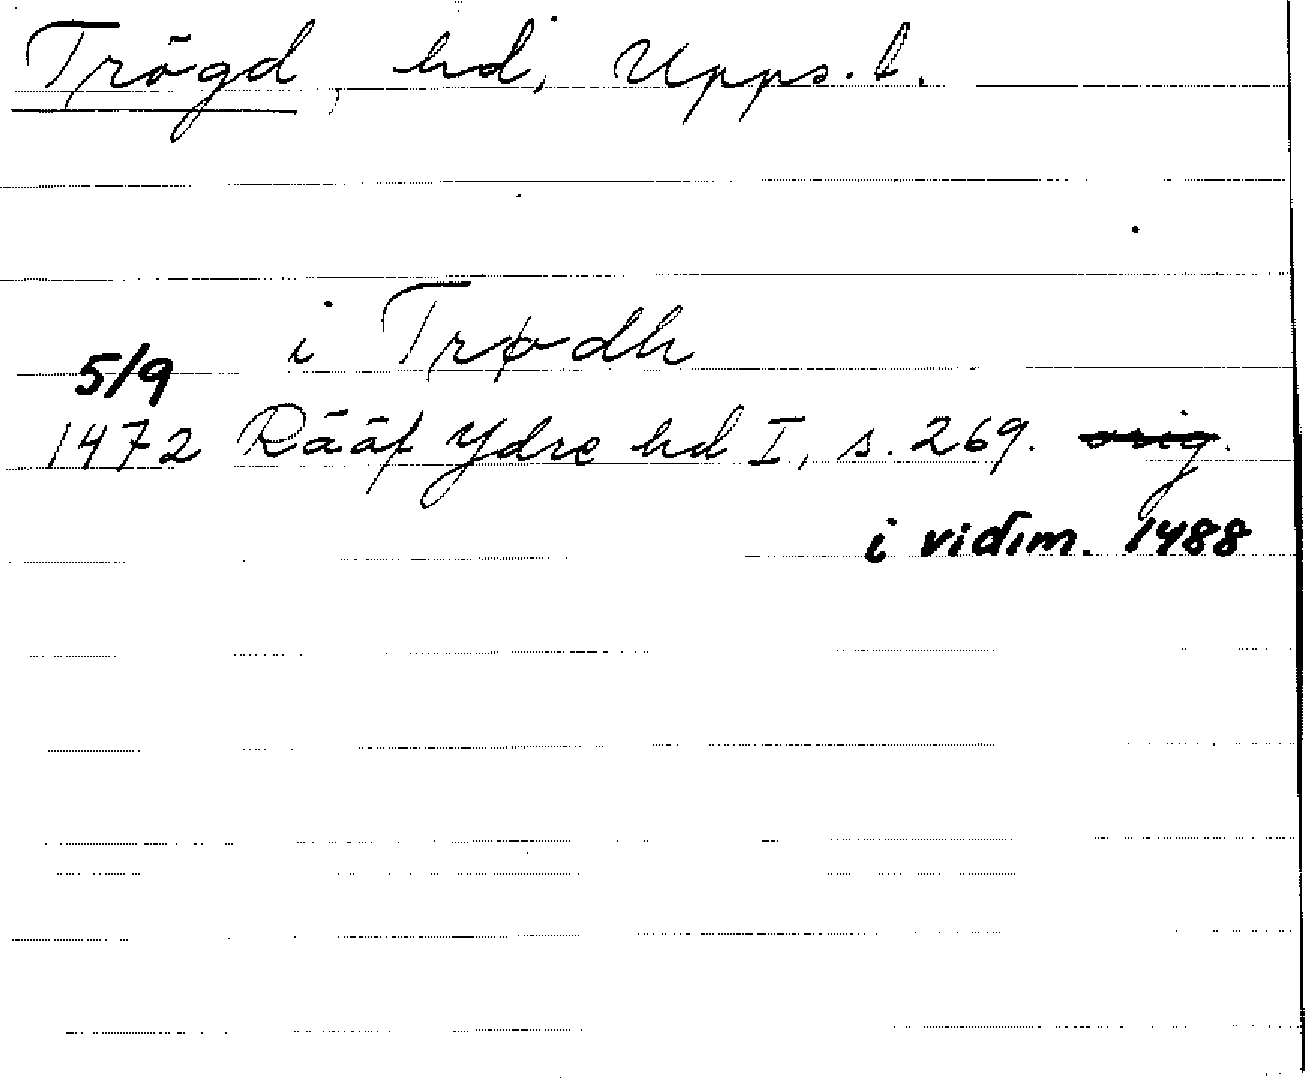 Trögd, hd, Upps. l.
i Trødh
5/9
1472 Rääf Ydre hd I, s. 269. orig.
i vidim. 1488